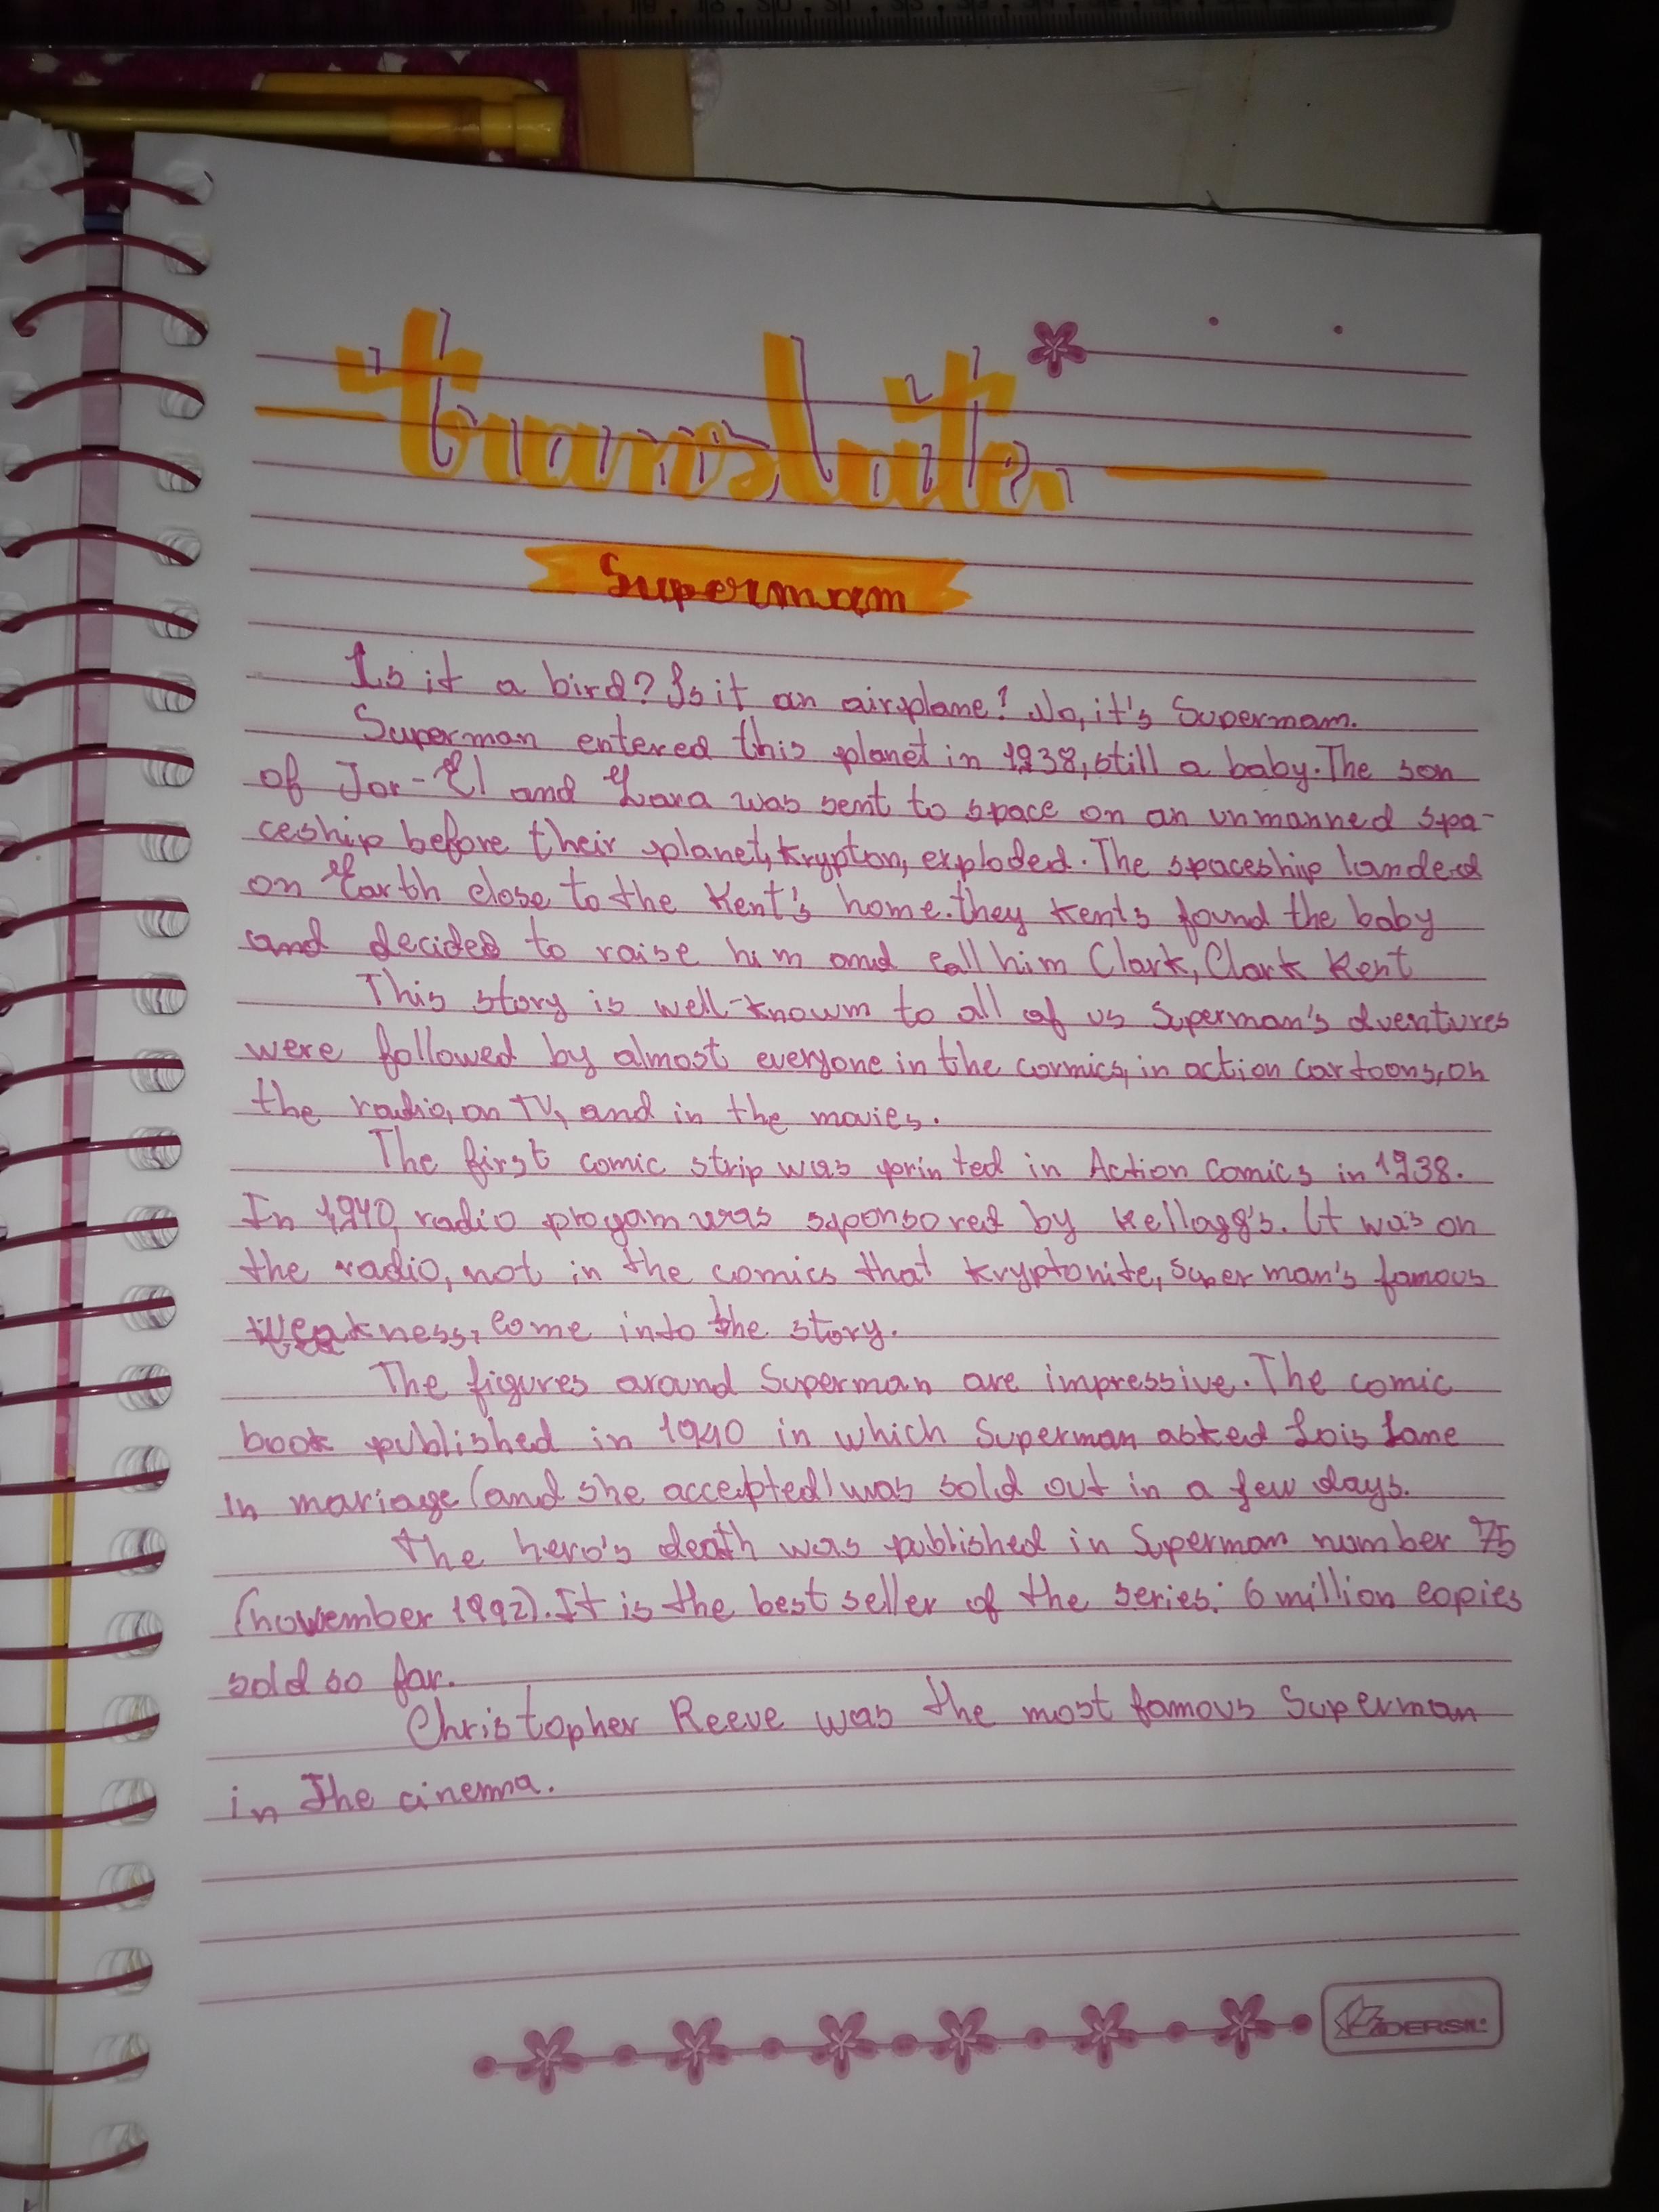 translate
Supermam
Is it a bird? Is it an airplane? No, it's Supermam.
Superman entered this planet in 1938, still a baby. The son
of Jor-El and Lara was sent to space on an unmanned spa-
ceship before their planet, Krypton, exploded. The spaceship landed
on Earth close to the Kent's home. they Kents found the baby
and decided to raise him and call him Clark, Clark Kent
This story is well-knowm to all of us Superman's dventures
were followed by almost everyone in the comics, in action cartoons, on
the radio, on TV, and in the movies.
The first comic strip was printed in Action Comics in 1938.
In 1940, radio progam was sponsored by Kellogg's. It was on
the radio, not in the comics that Kryptonite, Superman's famous
weakness, come into the story.
The figures around Superman are impressive. The comic
book published in 1940 in which Superman asked Lois Lane
in mariage (and she accepted) was sold out in a few days.
The hero's death was published in Superman number 75
(november 1992). It is the best seller of the series: 6 million copies
sold so far.
Christopher Reeve was the most famous Superman
in The cinema.